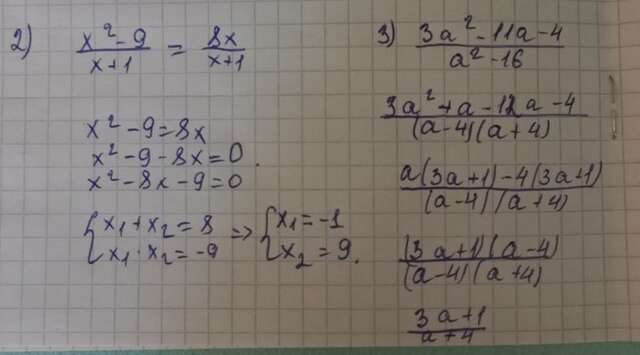 2) (x²-9)/(x+1) = 8x/(x+1)
x²-9=8x
x²-9-8x=0.
x²-8x-9=0
{x₁+x₂=8 => {x₁=-1
{x₁·x₂=-9 {x₂=9.
3) (3a²-11a-4)/(a²-16)
(3a²+a-12a-4)/((a-4)(a+4))
(a(3a+1)-4(3a+1))/((a-4)(a+4))
((3a+1)(a-4))/((a-4)(a+4))
(3a+1)/(a+4)